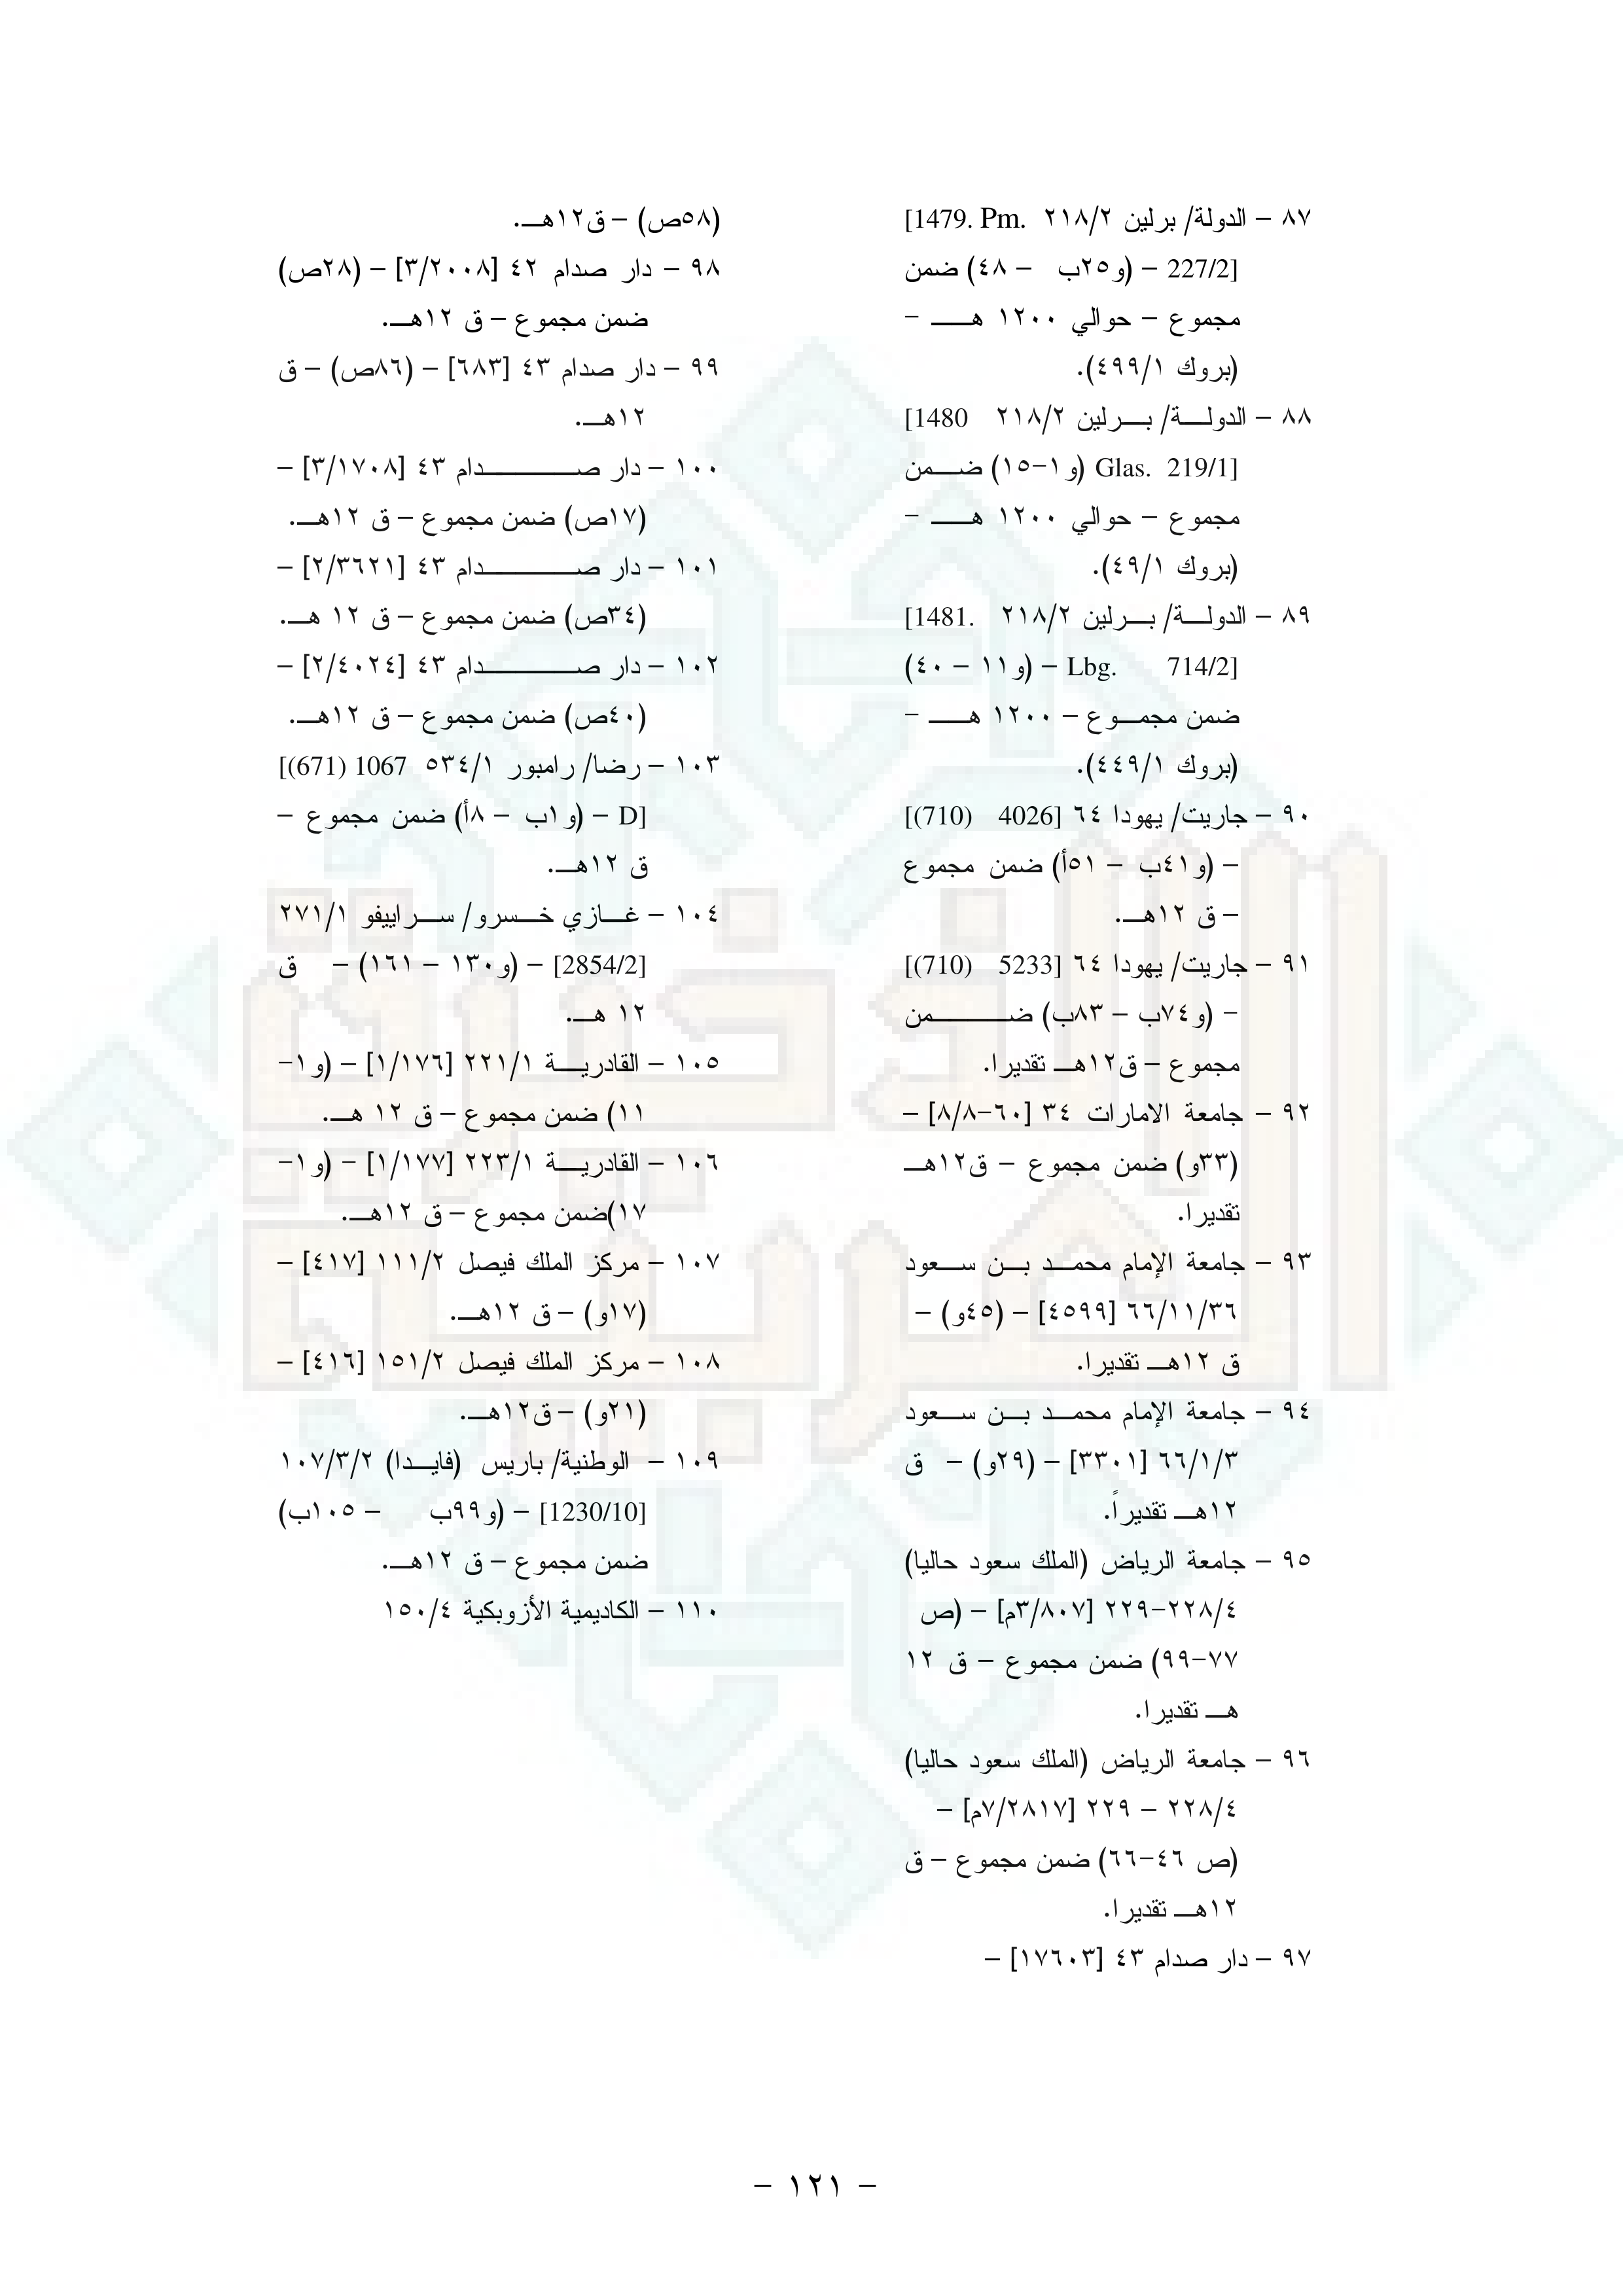 ٨٧ – الدولة/ برلين ٢١٨/٢ [1479. Pm.
227/2] – (و٢٥ب – ٤٨) ضمن
مجموع – حوالي ١٢٠٠ هـ –
(بروك ٤٩٩/١).
٨٨ – الدولة/ برلين ٢١٨/٢ [1480
Glas. 219/1] (و١-١٥) ضمن
مجموع – حوالي ١٢٠٠ هـ –
(بروك ٤٩/١).
٨٩ – الدولة/ برلين ٢١٨/٢ [1481.
Lbg. 714/2] – (و١١ – ٤٠)
ضمن مجموع – ١٢٠٠ هـ –
(بروك ٤٤٩/١).
٩٠ – جاريت/ يهودا ٦٤ [4026 (710)]
– (و٤١ب – ٥١أ) ضمن مجموع
– ق ١٢هـ.
٩١ – جاريت/ يهودا ٦٤ [5233 (710)]
– (و٧٤ب – ٨٣ب) ضمن
مجموع – ق١٢هـ تقديرا.
٩٢ – جامعة الامارات ٣٤ [٦٠-٨/٨] –
(٣٣و) ضمن مجموع – ق١٢هـ
تقديرا.
٩٣ – جامعة الإمام محمد بن سعود
٦٦/١١/٣٦ [٤٥٩٩] – (٤٥و) –
ق ١٢هـ تقديرا.
٩٤ – جامعة الإمام محمد بن سعود
٦٦/١/٣ [٣٣٠١] – (٢٩و) – ق
١٢هـ تقديراً.
٩٥ – جامعة الرياض (الملك سعود حاليا)
٢٢٨/٤-٢٢٩ [٣/٨٠٧م] – (ص
٧٧-٩٩) ضمن مجموع – ق ١٢
هـ تقديرا.
٩٦ – جامعة الرياض (الملك سعود حاليا)
٢٢٨/٤ – ٢٢٩ [٧/٢٨١٧م] –
(ص ٤٦-٦٦) ضمن مجموع – ق
١٢هـ تقديرا.
٩٧ – دار صدام ٤٣ [١٧٦٠٣] –
(٥٨ص) – ق١٢هـ.
٩٨ – دار صدام ٤٢ [٣/٢٠٠٨] – (٢٨ص)
ضمن مجموع – ق ١٢هـ.
٩٩ – دار صدام ٤٣ [٦٨٣] – (٨٦ص) – ق
١٢هـ.
١٠٠ – دار صدام ٤٣ [٣/١٧٠٨] –
(١٧ص) ضمن مجموع – ق ١٢هـ.
١٠١ – دار صدام ٤٣ [٢/٣٦٢١] –
(٣٤ص) ضمن مجموع – ق ١٢ هـ.
١٠٢ – دار صدام ٤٣ [٢/٤٠٢٤] –
(٤٠ص) ضمن مجموع – ق ١٢هـ.
١٠٣ – رضا/ رامبور ٥٣٤/١ [(671) 1067
D] – (و١ب – ٨أ) ضمن مجموع –
ق ١٢هـ.
١٠٤ – غازي خسرو/ سراييفو ٢٧١/١
[2854/2] – (و١٣٠ – ١٦١) – ق
١٢ هـ.
١٠٥ – القادرية ٢٢١/١ [١/١٧٦] – (و١-
١١) ضمن مجموع – ق ١٢ هـ.
١٠٦ – القادرية ٢٢٣/١ [١/١٧٧] – (و١-
١٧)ضمن مجموع – ق ١٢هـ.
١٠٧ – مركز الملك فيصل ١١١/٢ [٤١٧] –
(١٧و) – ق ١٢هـ.
١٠٨ – مركز الملك فيصل ١٥١/٢ [٤١٦] –
(٢١و) – ق١٢هـ.
١٠٩ – الوطنية/ باريس (فايدا) ١٠٧/٣/٢
[1230/10] – (و٩٩ب – ١٠٥ب)
ضمن مجموع – ق ١٢هـ.
١١٠ – الكاديمية الأزوبكية ١٥٠/٤
الذخيرة
العربية
– ١٢١ –